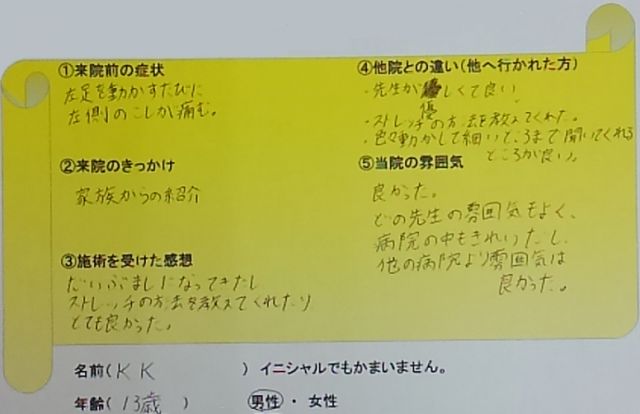 ①来院前の症状
左足を動かすたびに
左側のこしが痛む。
②来院のきっかけ
家族からの紹介
③施術を受けた感想
だいぶましになってきたし
ストレッチの方法を教えてくれたり
とても良かった。
④他院との違い(他へ行かれた方)
・先生が優しくて良い
・ストレッチの方法を教えてくれた。
・色々動かして細いところまで聞いてくれる
ところが良い。
⑤当院の雰囲気
良かった。
どの先生の雰囲気もよく、
病院の中もきれいだし、
他の病院より雰囲気は
良かった。
名前(KK)イニシャルでもかまいません。
年齢(13歳) 男性・女性